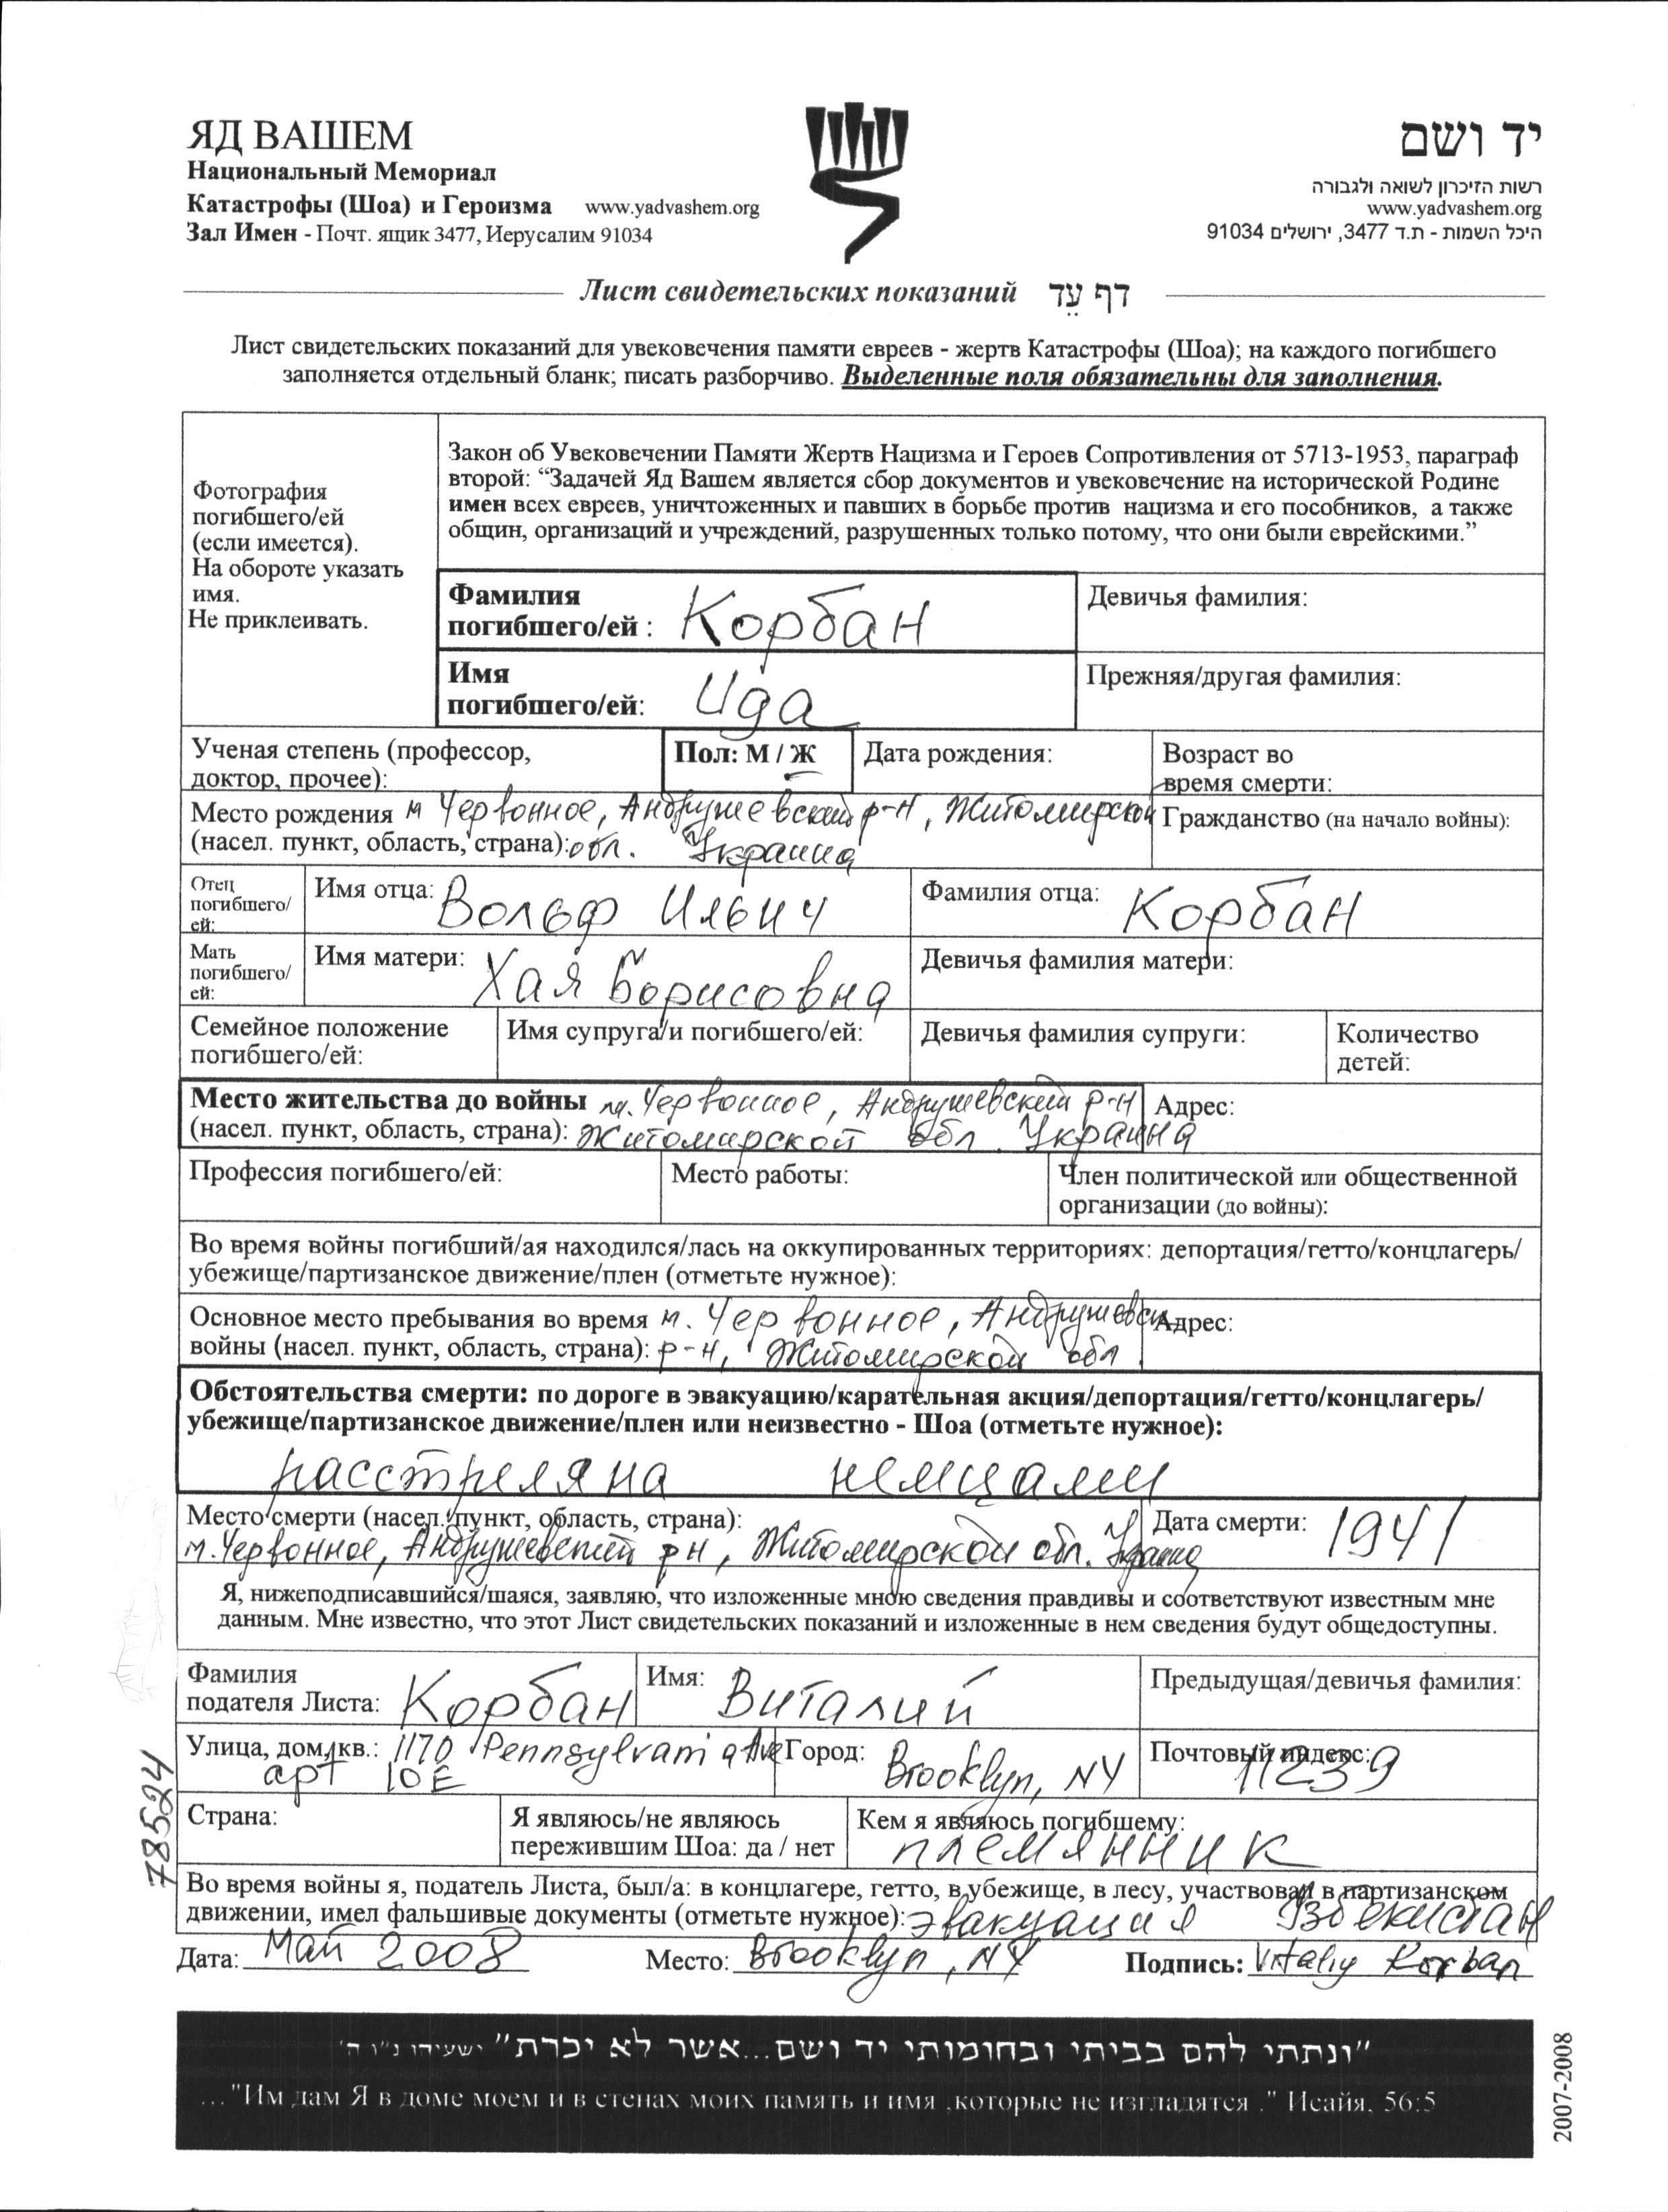 ЯД ВАШЕМ
Национальный Мемориал
Катастрофы (Шоа) и Героизма www.yadvashem.org
Зал Имен - Почт. ящик 3477, Иерусалим 91034
יד ושם
רשות הזיכרון לשואה ולגבורה
www.yadvashem.org
היכל השמות - ת.ד 3477, ירושלים 91034
Лист свидетельских показаний דף עֵד
Лист свидетельских показаний для увековечения памяти евреев - жертв Катастрофы (Шоа); на каждого погибшего
заполняется отдельный бланк; писать разборчиво. Выделенные поля обязательны для заполнения.
Фотография
погибшего/ей
(если имеется).
На обороте указать
имя.
Не приклеивать.
Закон об Увековечении Памяти Жертв Нацизма и Героев Сопротивления от 5713-1953, параграф
второй: “Задачей Яд Вашем является сбор документов и увековечение на исторической Родине
имен всех евреев, уничтоженных и павших в борьбе против нацизма и его пособников, а также
общин, организаций и учреждений, разрушенных только потому, что они были еврейскими.”
Фамилия
погибшего/ей : Корбан
Девичья фамилия:
Имя
погибшего/ей: Ида
Прежняя/другая фамилия:
Ученая степень (профессор,
доктор, прочее):
Пол: М / Ж
Дата рождения:
Возраст во
время смерти:
Место рождения м Червонное, Андрушевский р-н, Житомирской
(насел. пункт, область, страна): обл. Украина
Гражданство (на начало войны):
Отец
погибшего/
ей:
Имя отца: Вольф Ильич
Фамилия отца: Корбан
Мать
погибшего/
ей:
Имя матери: Хая Борисовна
Девичья фамилия матери:
Семейное положение
погибшего/ей:
Имя супруга/и погибшего/ей:
Девичья фамилия супруги:
Количество
детей:
Место жительства до войны м. Червонное, Андрушевский р-н
(насел. пункт, область, страна): Житомирской обл. Украина
Адрес:
Профессия погибшего/ей:
Место работы:
Член политической или общественной
организации (до войны):
Во время войны погибший/ая находился/лась на оккупированных территориях: депортация/гетто/концлагерь/
убежище/партизанское движение/плен (отметьте нужное):
Основное место пребывания во время м. Червонное, Андрушевск
войны (насел. пункт, область, страна): р-н, Житомирской обл.
Адрес:
Обстоятельства смерти: по дороге в эвакуацию/карательная акция/депортация/гетто/концлагерь/
убежище/партизанское движение/плен или неизвестно - Шоа (отметьте нужное):
расстреляна немцами
Место смерти (насел. пункт, область, страна):
м. Червонное, Андрушевский р н, Житомирской обл. Украина
Дата смерти: 1941
Я, нижеподписавшийся/шаяся, заявляю, что изложенные мною сведения правдивы и соответствуют известным мне
данным. Мне известно, что этот Лист свидетельских показаний и изложенные в нем сведения будут общедоступны.
Фамилия
подателя Листа: Корбан
Имя: Виталий
Предыдущая/девичья фамилия:
Улица, дом, кв.: 1170 Pennsylvania Ave
apt 10E
Город: Brooklyn, NY
Почтовый индекс: 11239
Страна:
Я являюсь/не являюсь
пережившим Шоа: да / нет
Кем я являюсь погибшему:
племянник
Во время войны я, податель Листа, был/а: в концлагере, гетто, в убежище, в лесу, участвовал в партизанском
движении, имел фальшивые документы (отметьте нужное): эвакуация Узбекистан
Дата: Май 2008 Место: Brooklyn, NY Подпись: Vitaliy Korban
78524
"ונתתי להם בביתי ובחומותי יד ושם...אשר לא יכרת" ישעיהו נ"ו ה'
..."Им дам Я в доме моем и в стенах моих память и имя ,которые не изгладятся ." Исайя, 56:5
2007-2008